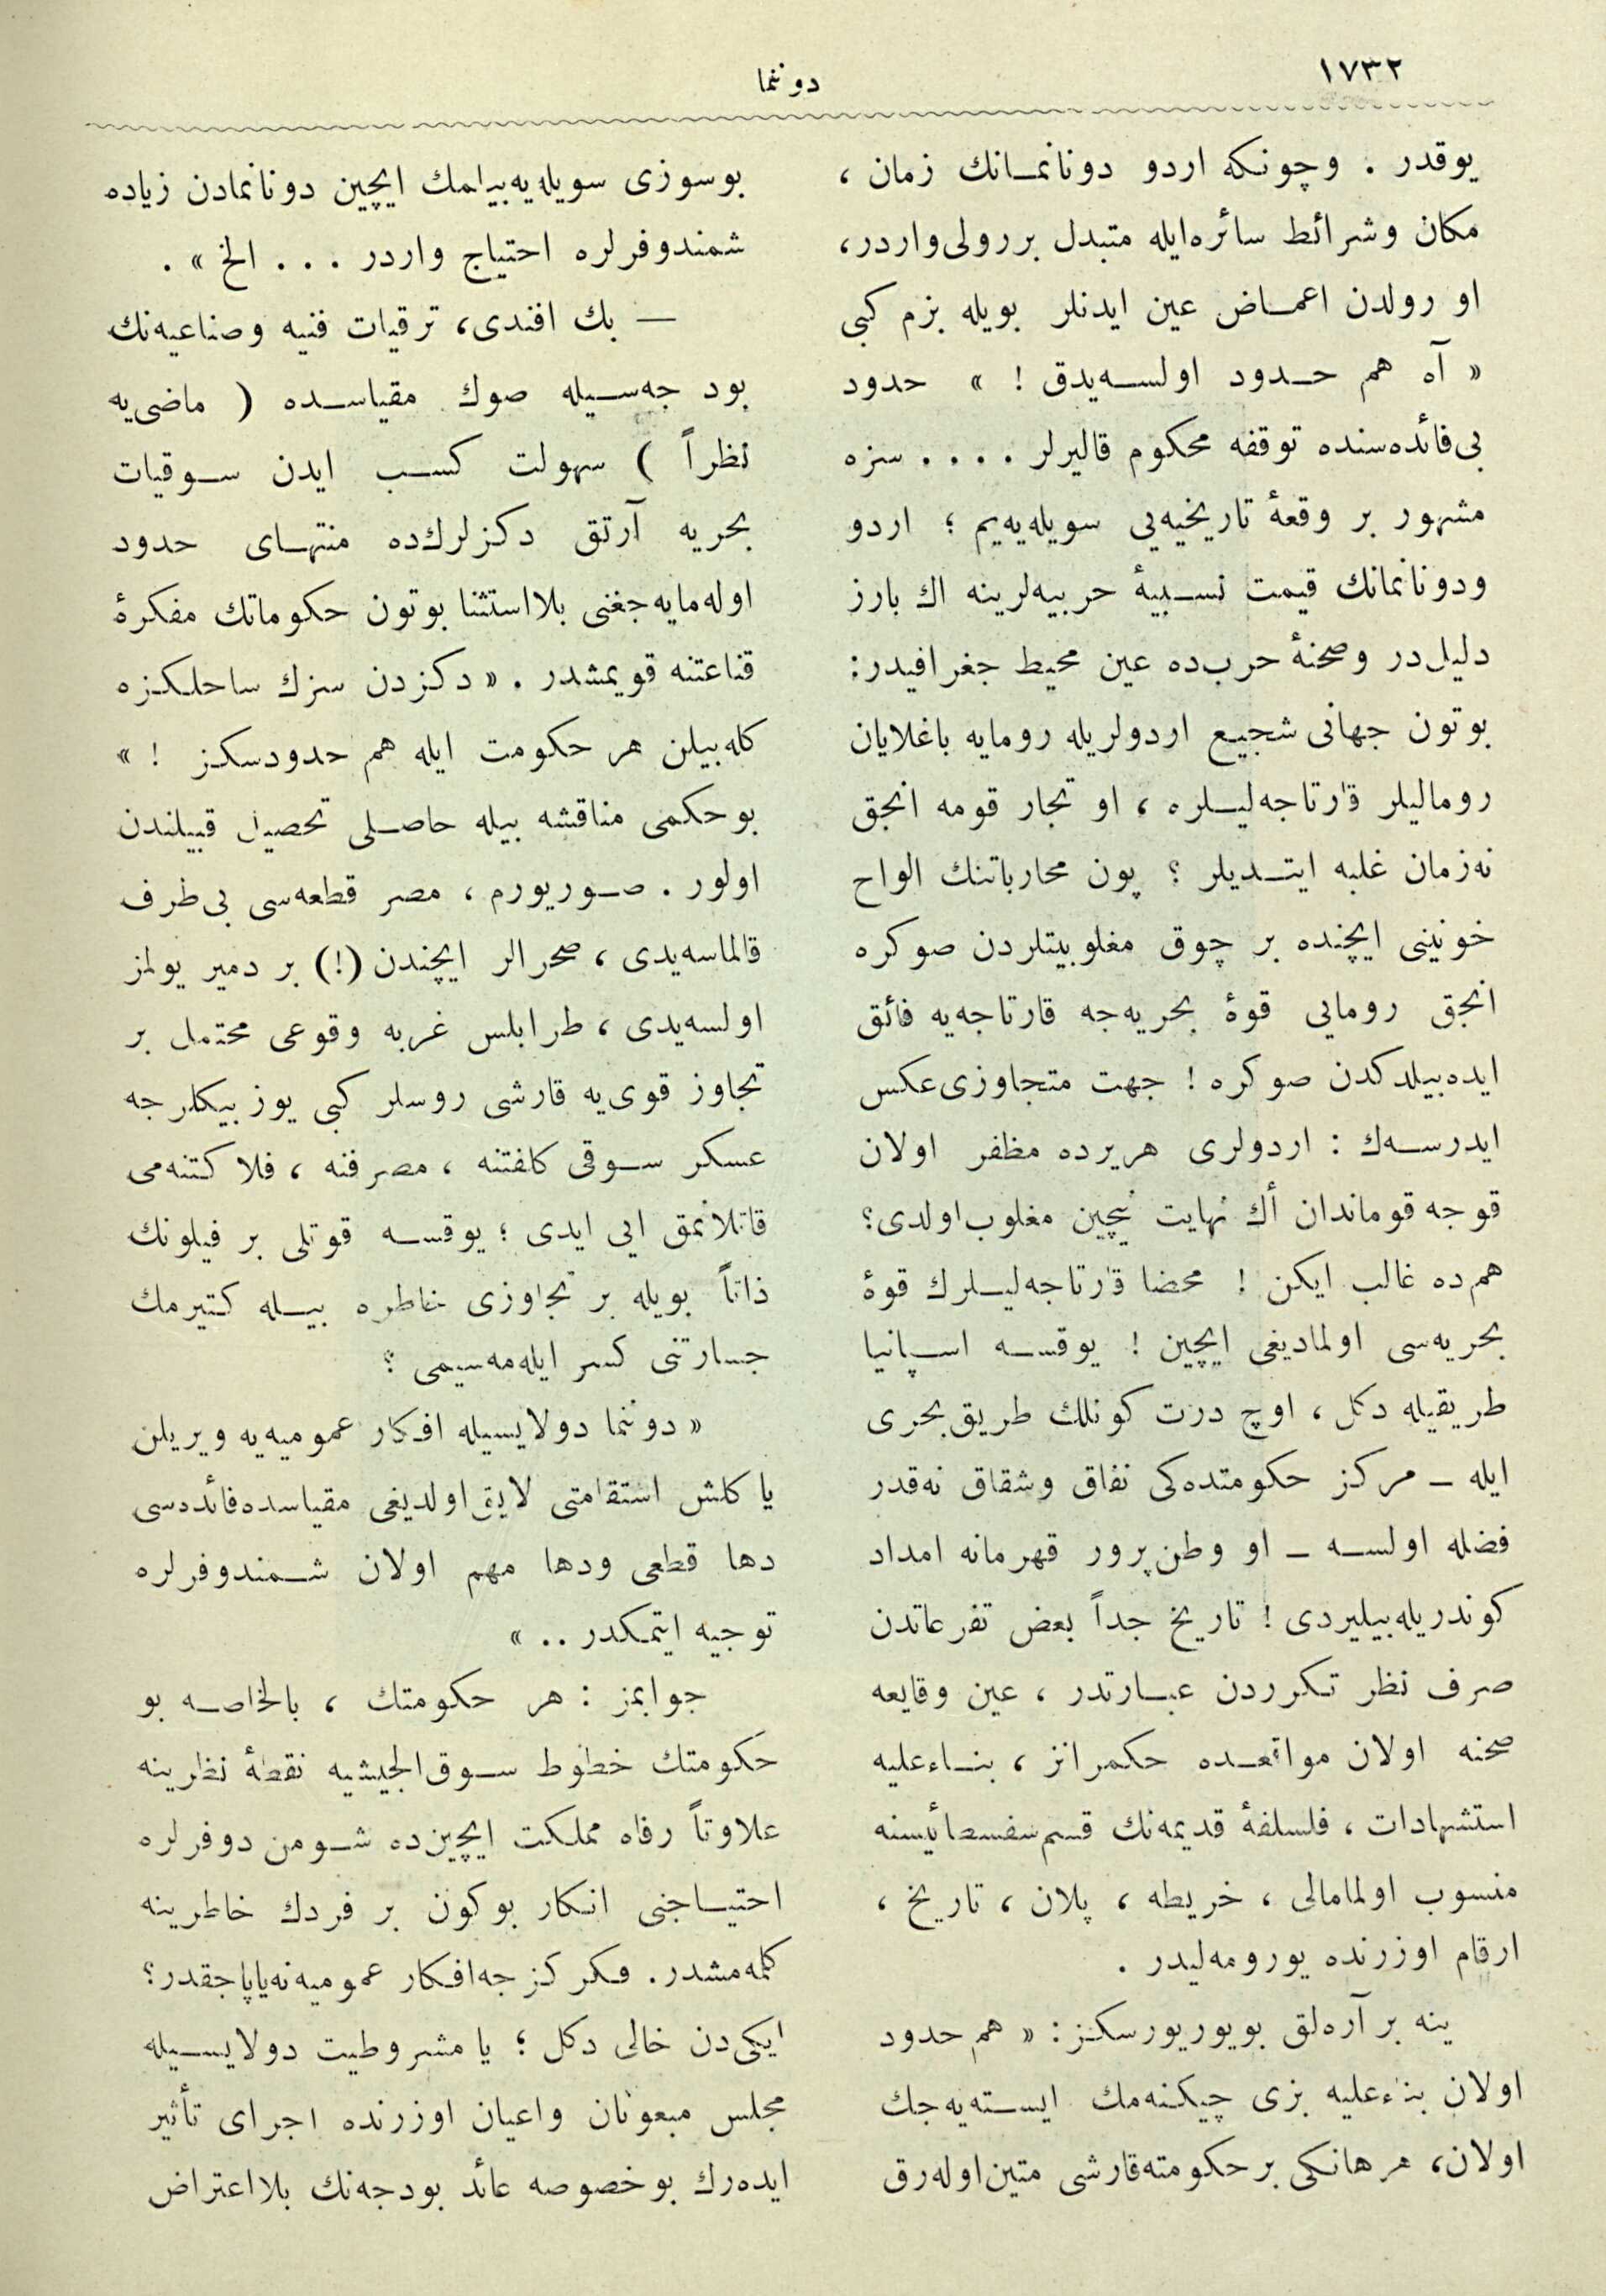 ١٧٣٢
دوننما
يوقدر . وچونكه اردو دونانمــانك زمان ،
مكان وشرائط سائره‌ايله متبدل بررولى‌واردر،
او رولدن اعمــاض عين ايدنلر بويله بزم كبى
« آه هم حــدود اولســه‌يدق ! » حدود
بى‌فائده‌سنده توقفه محكوم قاليرلر . . . . سزه
مشهور بر وقعهٔ تاريخيه‌يى سويله‌يه‌يم ؛ اردو
ودونانمانك قيمت نســبيهٔ حربيه‌لرينه اك بارز
دليل‌در وصحنهٔ حرب‌ده عين محيط جغرافيدر:
بوتون جهانى شجيــع اردولريله رومايه باغلايان
روماليلر قارتاجه‌ليــلره ، او تجار قومه انجق
نه‌زمان غلبه ايتــديلر ؟ پون محارباتنك الواح
خونينى ايچنده بر چوق مغلوبيتلردن صوكره
انجق رومايى قوهٔ بحريه‌جه قارتاجه‌يه فائق
ايده‌بيلدكدن صوكره ! جهت متجاوزى‌عكس
ايدرســه‌ك : اردولرى هريرده مظفر اولان
قوجه قوماندان أك نهايت نيچين مغلوب‌اولدى؟
هم‌ده غالب ايكن ! محضا قارتاجه‌ليــلرك قوهٔ
بحريه‌سى اولماديغى ايچين ! يوقســه اســپانيا
طريقيله دكل ، اوچ درت كونلك طريق‌بحرى
ايله ــ مركز حكومتده‌كى نفاق وشقاق نه‌قدر
فضله اولســه ــ او وطن‌پرور قهرمانه امداد
كوندريله‌بيليردى ! تاريخ جداً بعض تفرعاتدن
صرف نظر تــكرردن عبــارتدر ، عين وقايعه
صحنه اولان مواقعــده حكمرانز ، بنــاءعليه
استشهادات ، فلسلفهٔ قديمه‌نك قسم‌سفسطائيسنه
منسوب اولمامالى ، خريطه ، پلان ، تاريخ ،
ارقام اوزرنده يورومه‌ليدر .
ينه بر آره‌لق بويوريورسكز : « هم حدود
اولان بناءعليه بزى چيكنه‌مك ايســته‌يه‌جك
اولان، هر هانكى برحكومته‌قارشى متين‌اوله‌رق
بوسوزى سويله‌يه‌بيلمك ايچين دونانمادن زياده
شمندوفرلره احتياج واردر . . . الخ » .
— بك افندى، ترقيات فنيه وصناعيه‌نك
بود جه‌ســيله صوك مقياســده ( ماضى‌يه
نظراً ) سهولت كســب ايدن ســوقيات
بحريه آرتق دكزلرك‌ده منتهــاى حدود
اوله‌مايه‌جغنى بلااستثنا بوتون حكوماتك مفكرهٔ
قناعتنه قويمشدر . « دكزدن سزك ساحلــكزه
كله‌بيلن هر حكومت ايله هم حدودسكز ! »
بوحكمى مناقشه بيله حاصــلى تحصيل قبيلندن
اولور . صــوريورم ، مصر قطعه‌سى بى‌طرف
قالماسه‌يدى ، صحرالر ايچندن (!) بر دمير يولمز
اولسه‌يدى ، طرابلس غربه وقوعى محتمل بر
تجاوز قوى‌يه قارشى روسلر كبى يوز بيكلرجه
عسكر ســوقى كلفتنه ، مصرفنه ، فلاكتنه‌مى
قاتلانمق ايى ايدى ؛ يوقســه قوتلى بر فيلونك
ذاتاً بويله بر تجاوزى خاطره بيــله كتيرمك
جسارتنى كسر ايله‌مه‌سيمى ؟
« دوننما دولايسيله افــكار عموميه‌يه ويريلن
ياكلش استقامتى لايق‌اولديغى مقياسده‌فائده‌سى
دها قطعى ودها مهم اولان شــمندوفرلره
توجيه ايتمكدر . . »
جوابمز : هر حكومتك ، بالخاصــه بو
حكومتك خطوط ســوق‌الجيشيه نقطهٔ نظرينه
علاوتاً رفاه مملكت ايچين‌ده شــومن دوفرلره
احتيــاجنى انــكار بوكون بر فردك خاطرينه
كلمه‌مشدر. فــكركزجه‌افــكار عموميه‌نه‌ياپاجقدر؟
ايكى‌دن خالى دكل ؛ يا مشروطيت دولايســيله
مجلس مبعوثان واعيان اوزرنده اجراى تأثير
ايده‌رك بوخصوصه عائد بودجه‌نك بلااعتراض